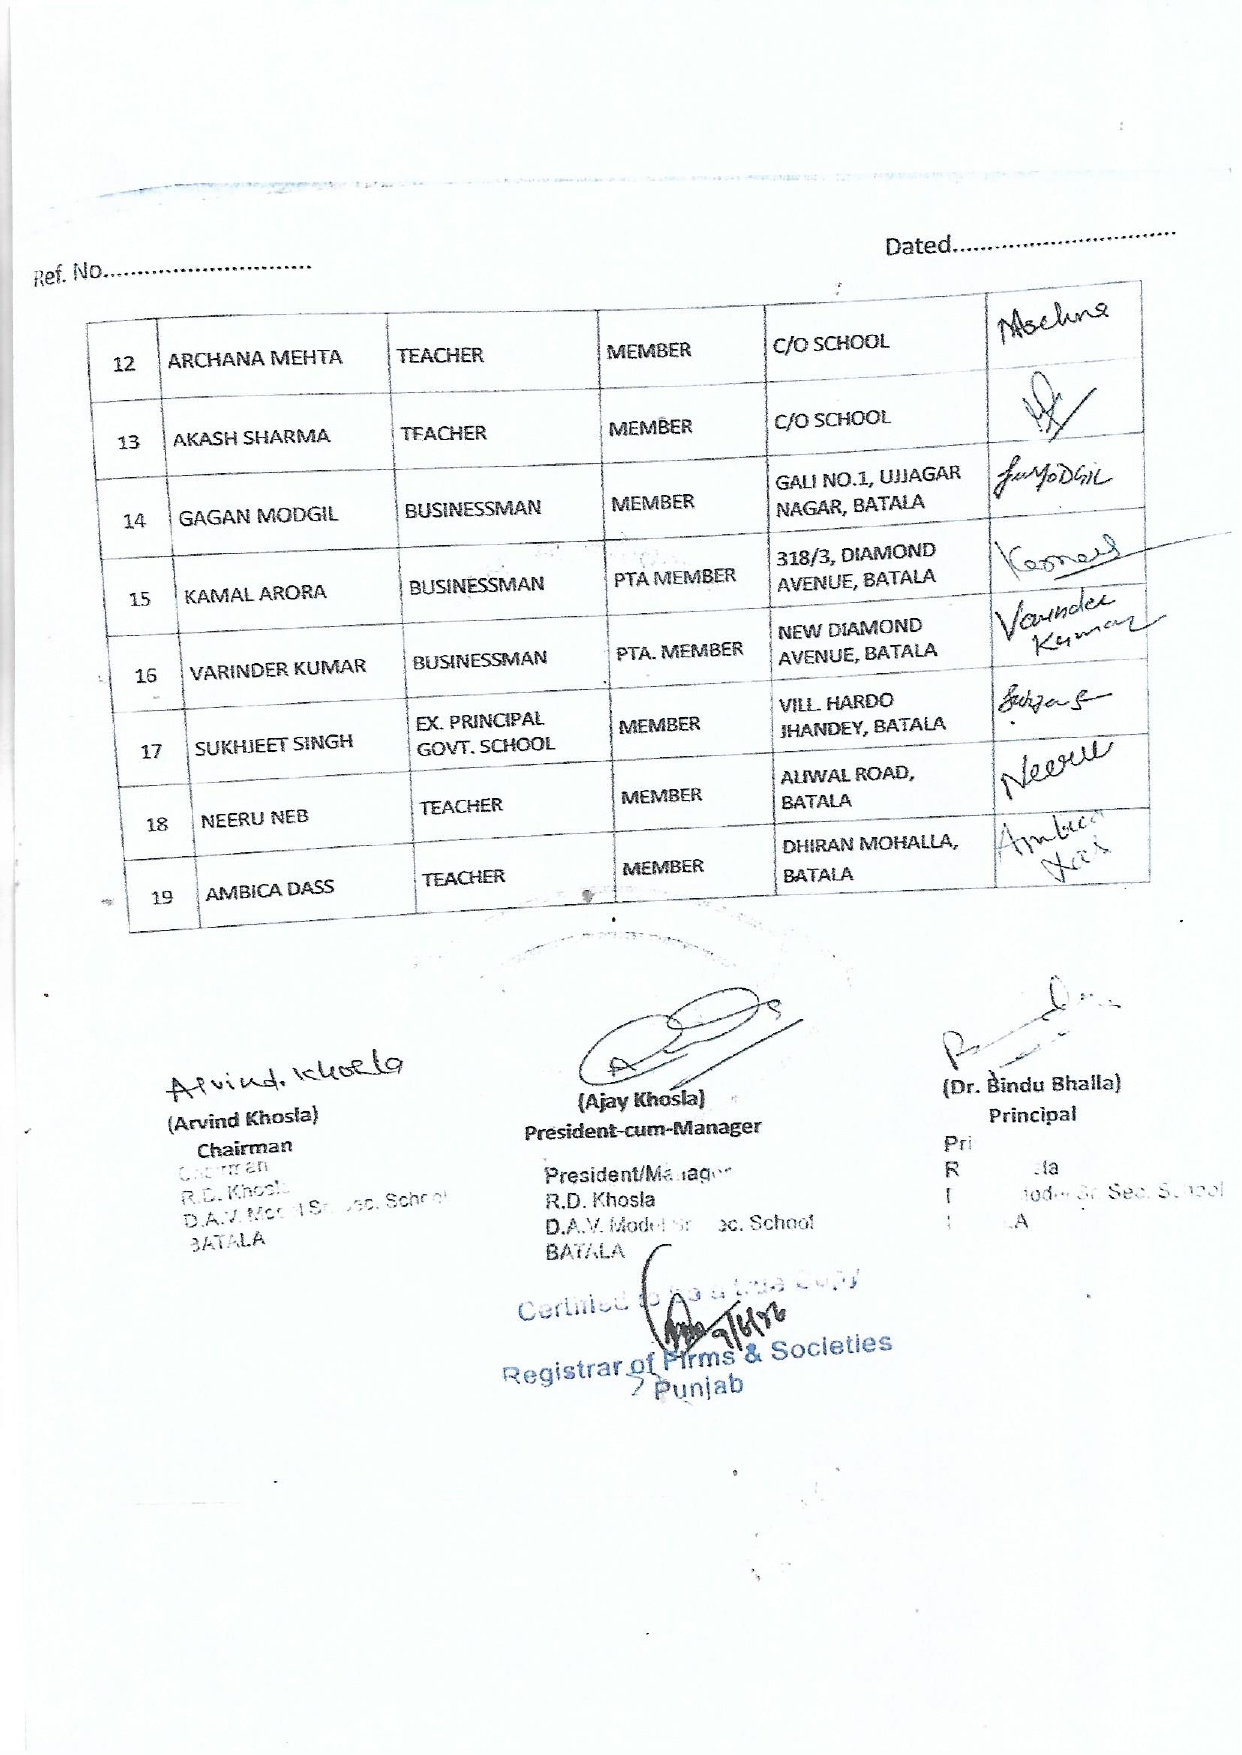 Ref. No..............................
Dated.................................
12 ARCHANA MEHTA TEACHER MEMBER C/O SCHOOL
13 AKASH SHARMA TEACHER MEMBER C/O SCHOOL
14 GAGAN MODGIL BUSINESSMAN MEMBER GALI NO.1, UJJAGAR
NAGAR, BATALA
15 KAMAL ARORA BUSINESSMAN PTA MEMBER 318/3, DIAMOND
AVENUE, BATALA
16 VARINDER KUMAR BUSINESSMAN PTA. MEMBER NEW DIAMOND
AVENUE, BATALA
Varinder
Kumar
17 SUKHJEET SINGH EX. PRINCIPAL
GOVT. SCHOOL MEMBER VILL. HARDO
JHANDEY, BATALA
18 NEERU NEB TEACHER MEMBER ALIWAL ROAD,
BATALA
Neeru
19 AMBICA DASS TEACHER MEMBER DHIRAN MOHALLA,
BATALA
Ambica
Arvind. Khosla
(Arvind Khosla)
Chairman
Chairman
R.D. Khosla
D.A.V. Model Sr. Sec. School
BATALA
(Ajay Khosla)
President-cum-Manager
President/Manager
R.D. Khosla
D.A.V. Model Sr. Sec. School
BATALA
(Dr. Bindu Bhalla)
Principal
Sr. Sec. School
Certified to be a true Copy
Registrar of Firms & Societies
Punjab